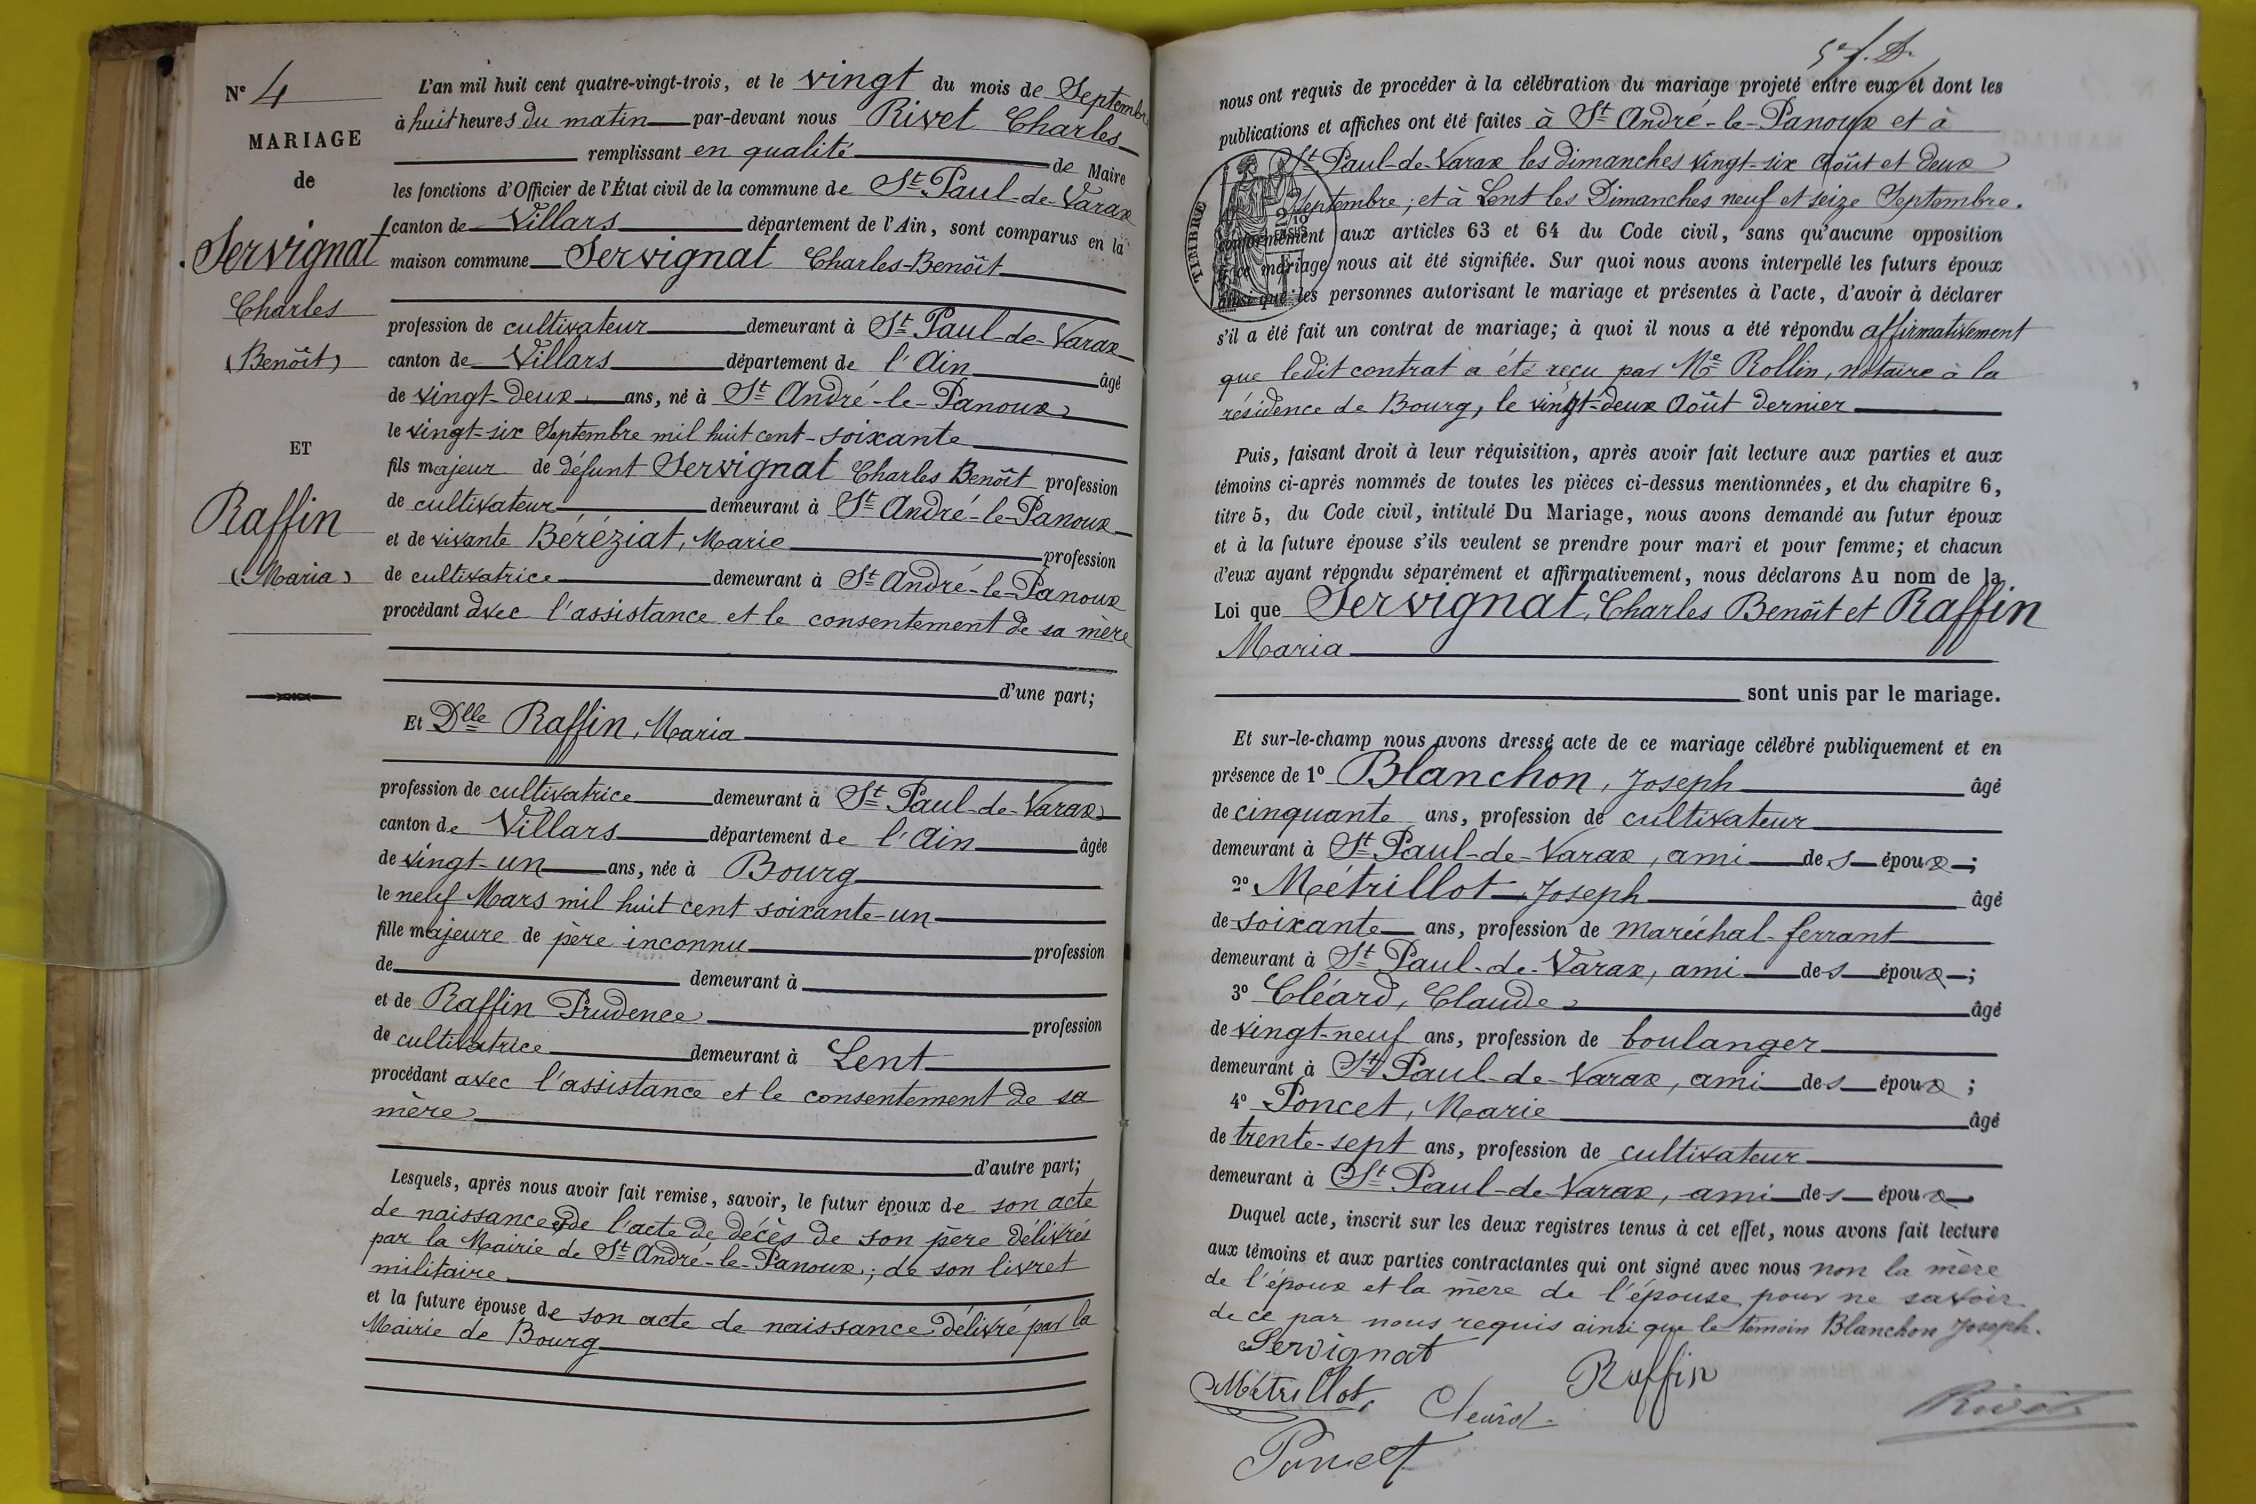 N° 4
MARIAGE
de
Servignat
Charles
(Benoît)
ET
Raffin
(Maria)
L'an mil huit cent quatre-vingt-trois, et le vingt du mois de Septembre
à huit heures du matin par-devant nous Rivet Charles
remplissant en qualité de Maire
les fonctions d'Officier de l'État civil de la commune de St Paul-de-Varax
canton de Villars département de l'Ain, sont comparus en la
maison commune Servignat Charles-Benoît
profession de cultivateur demeurant à St Paul-de-Varax
canton de Villars département de l'Ain âgé
de vingt-deux ans, né à St André-le-Panoux
le vingt-six Septembre mil huit cent-soixante
fils majeur de défunt Servignat Charles Benoît profession
de cultivateur demeurant à St André-le-Panoux
et de vivante Béréziat, Marie profession
de cultivatrice demeurant à St André-le-Panoux
procédant avec l'assistance et le consentement de sa mère
d'une part;
Et Dlle Raffin, Maria
profession de cultivatrice demeurant à St Paul-de-Varax
canton de Villars département de l'Ain âgée
de vingt-un ans, née à Bourg
le neuf Mars mil huit cent soixante-un
fille majeure de père inconnu profession
de demeurant à
et de Raffin Prudence profession
de cultivatrice demeurant à Lent
procédant avec l'assistance et le consentement de sa
mère
d'autre part;
Lesquels, après nous avoir fait remise, savoir, le futur époux de son acte
de naissance et de l'acte de décès de son père délivrés
par la Mairie de St André-le-Panoux; de son livret
militaire
et la future épouse de son acte de naissance délivré par la
Mairie de Bourg
nous ont requis de procéder à la célébration du mariage projeté entre eux et dont les
publications et affiches ont été faites à St André-le-Panoux et à
St Paul-de-Varax les dimanches vingt-six Août et deux
Septembre; et à Lent les Dimanches neuf et seize Septembre.
TIMBRE
conformément aux articles 63 et 64 du Code civil, sans qu'aucune opposition
à ce mariage nous ait été signifiée. Sur quoi nous avons interpellé les futurs époux
ainsi que les personnes autorisant le mariage et présentes à l'acte, d'avoir à déclarer
s'il a été fait un contrat de mariage; à quoi il nous a été répondu affirmativement
que ledit contrat a été reçu par Me Rollin, notaire à la
résidence de Bourg, le vingt-deux Août dernier
Puis, faisant droit à leur réquisition, après avoir fait lecture aux parties et aux
témoins ci-après nommés de toutes les pièces ci-dessus mentionnées, et du chapitre 6,
titre 5, du Code civil, intitulé Du Mariage, nous avons demandé au futur époux
et à la future épouse s'ils veulent se prendre pour mari et pour femme; et chacun
d'eux ayant répondu séparément et affirmativement, nous déclarons Au nom de la
Loi que Servignat, Charles Benoît et Raffin
Maria
sont unis par le mariage.
Et sur-le-champ nous avons dressé acte de ce mariage célébré publiquement et en
présence de 1° Blanchon, Joseph âgé
de cinquante ans, profession de cultivateur
demeurant à St Paul-de-Varax, ami des époux;
2° Métrillot, Joseph âgé
de soixante ans, profession de maréchal-ferrant
demeurant à St Paul-de-Varax, ami des époux;
3° Cléard, Claude âgé
de vingt-neuf ans, profession de boulanger
demeurant à St Paul-de-Varax, ami des époux;
4° Poncet, Marie âgé
de trente-sept ans, profession de cultivateur
demeurant à St Paul-de-Varax, ami des époux
Duquel acte, inscrit sur les deux registres tenus à cet effet, nous avons fait lecture
aux témoins et aux parties contractantes qui ont signé avec nous non la mère
de l'époux et la mère de l'épouse pour ne savoir
de ce par nous requis ainsi que le témoin Blanchon Joseph.
Servignat
Raffin
Métrillot
Cleard
Rivet
Poncet